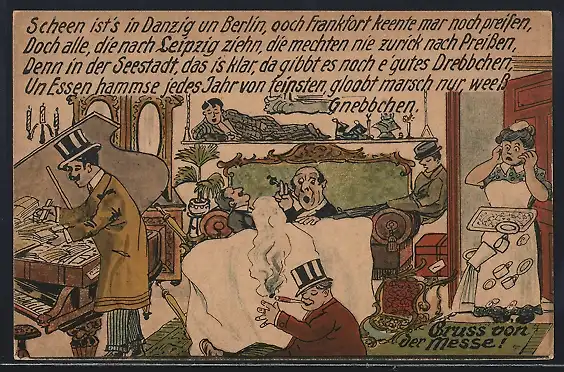 Scheen ist's in Danzig un Berlin, ooch Frankfort keente mar noch preisen,
Doch alle, die nach Leipzig ziehn, die mechten nie zurick nach Preißen,
Denn in der Seestadt, das is klar, da gibbt es noch e gutes Drebbchen,
Un Essen hammse jedes Jahr von feinsten, gloobt marsch nur, weeß
Gnebbchen.
Gruss von
der Messe!